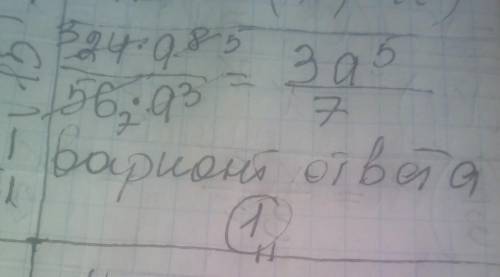 24 · a⁸ / 56 · a³ = 3a⁵ / 7
вариант ответа
1